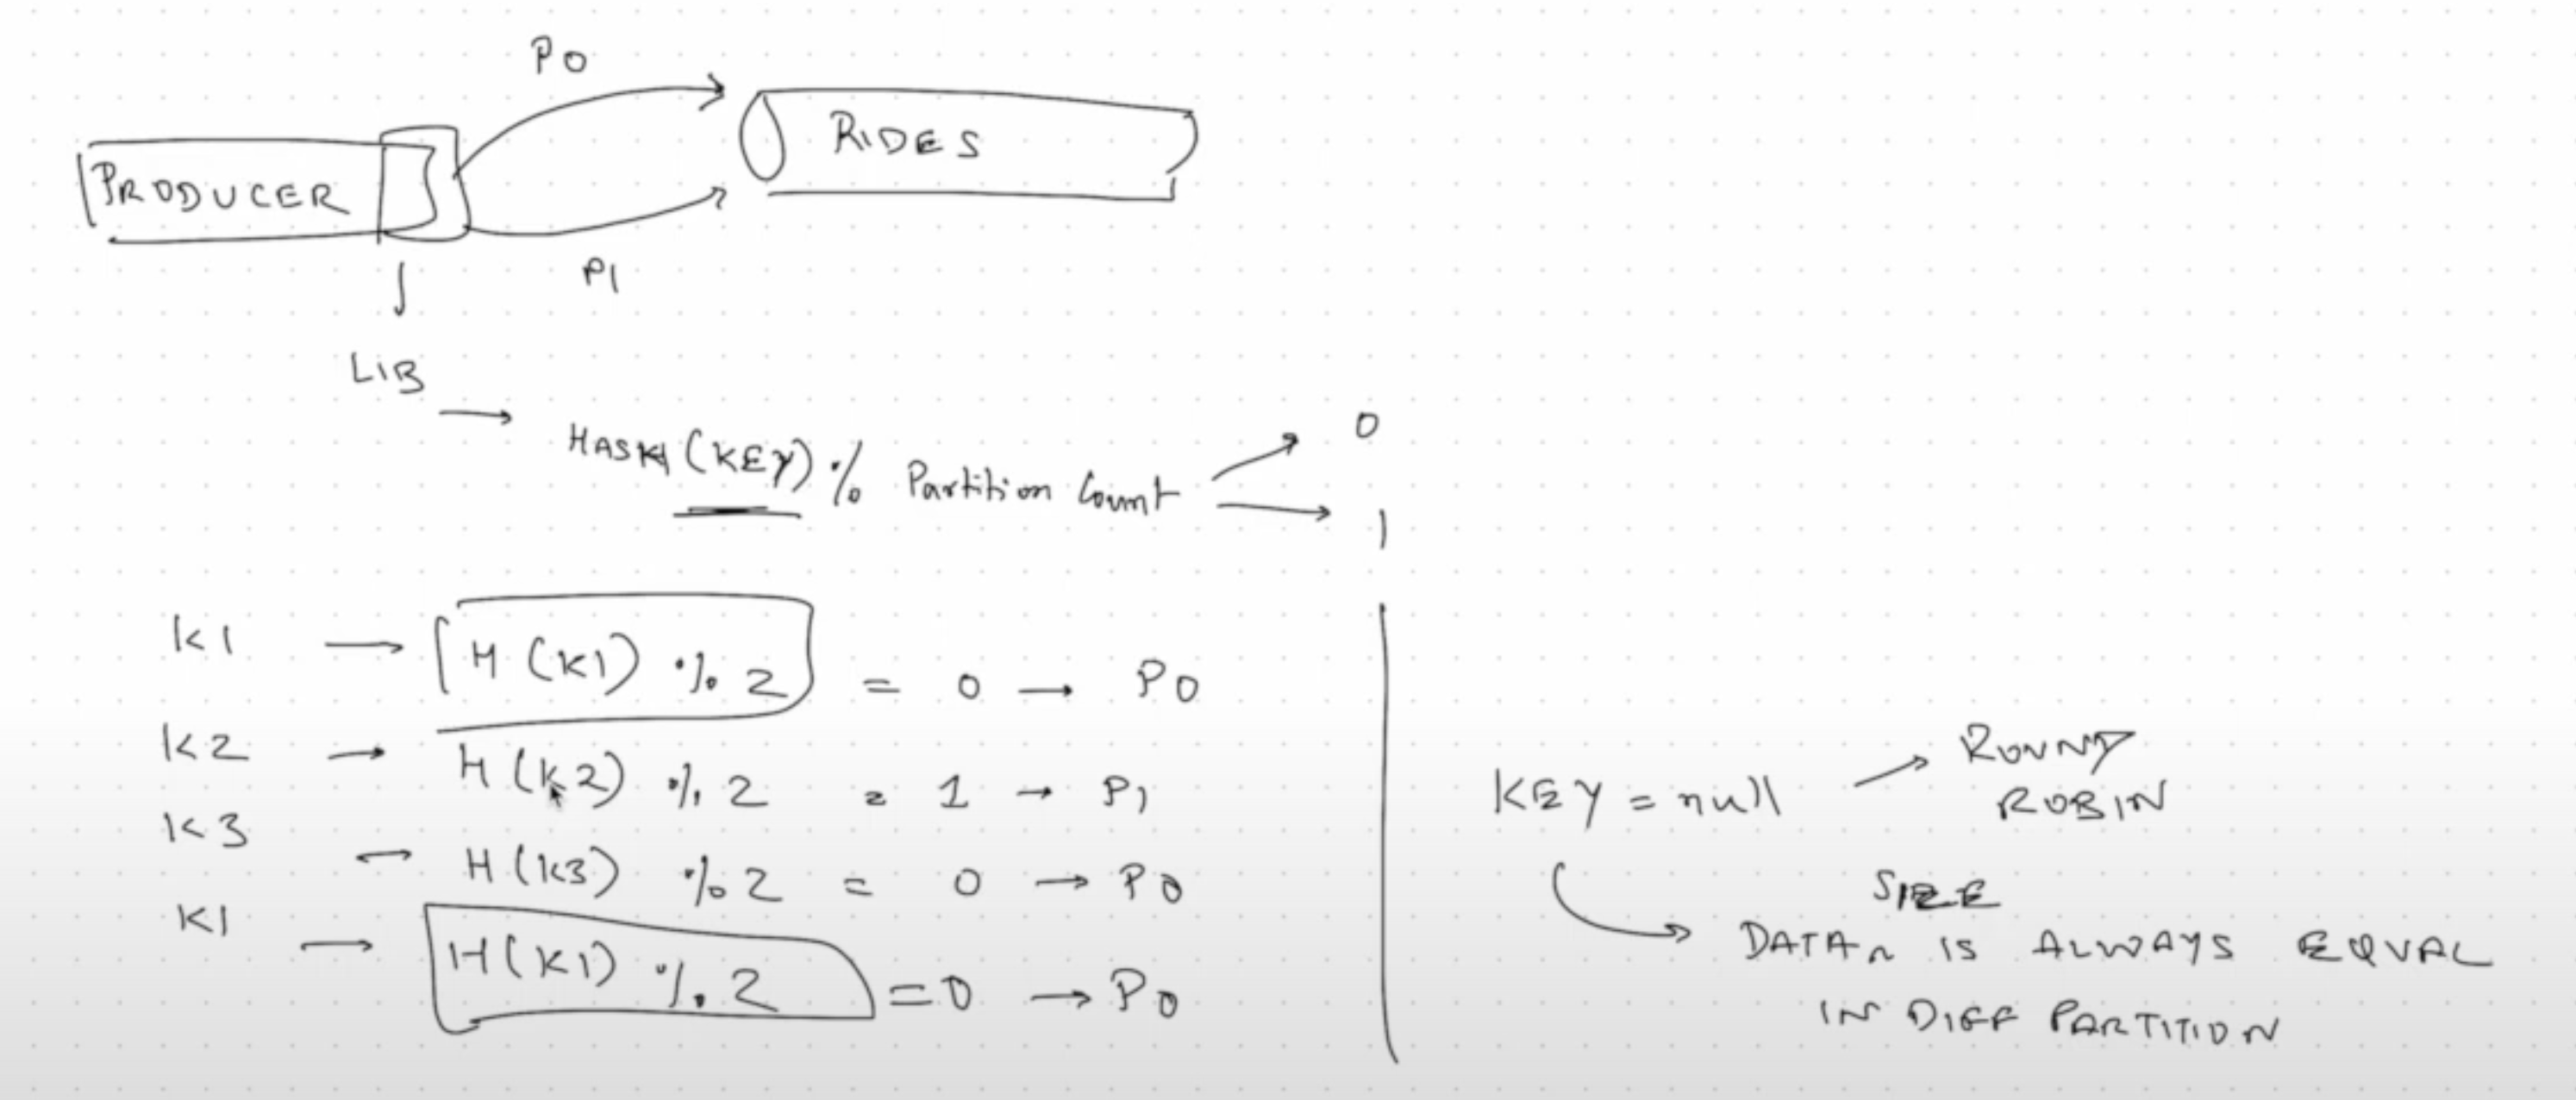 P0
RIDES
PRODUCER
P1
LIB
HASH (KEY) % Partition Count
0
1
K1 → H (K1) % 2 = 0 → P0
K2 → H (K2) % 2 = 1 → P1
K3 – H (K3) % 2 = 0 → P0
K1 → H (K1) % 2 = 0 → P0
KEY = null → ROUND
ROBIN
SIZE
DATA IS ALWAYS EQUAL
IN DIFF PARTITION